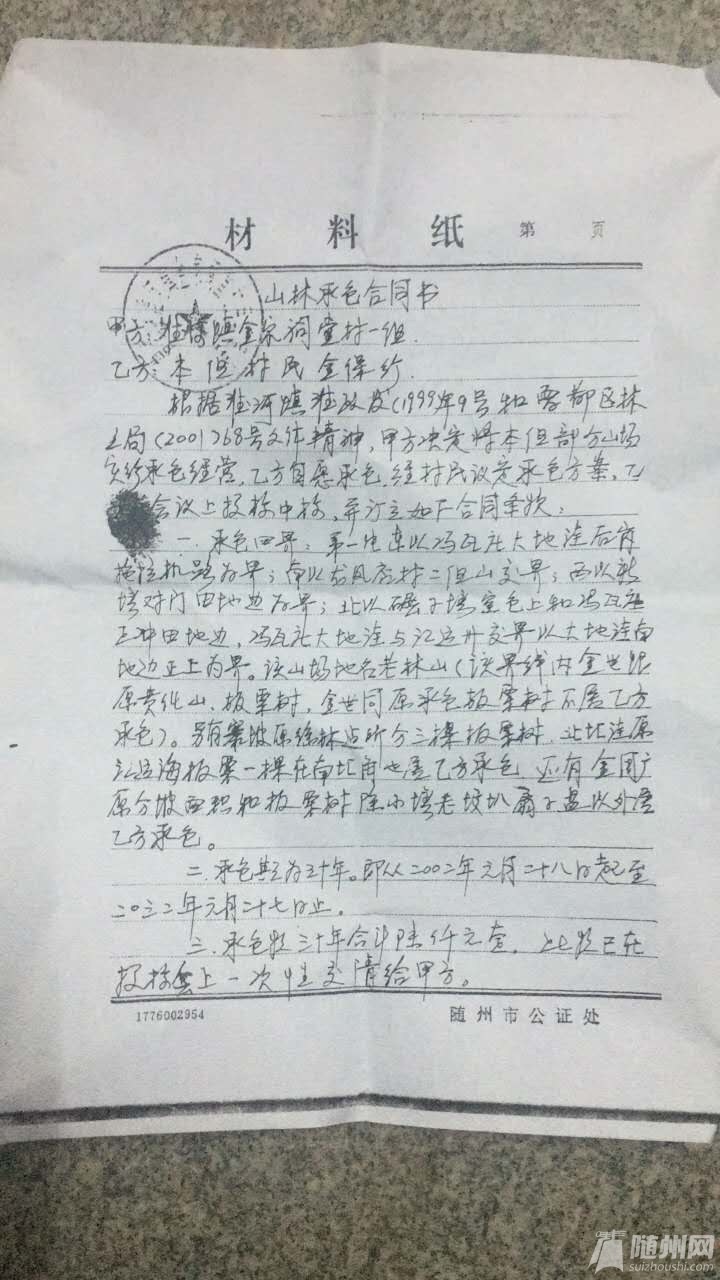 材料纸 第 页
山林承包合同书
甲方:淮河镇金家祠堂村一组.
乙方:本组村民金保行.
根据淮河镇淮政发(1999年9号和曾都区林
工局(2001)68号文件精神,甲方决定将本组部分山场
实行承包经营,乙方自愿承包,经村民议定承包方案,乙
会议上投标中标,并订立如下合同条款:
一.承包四界:第一块東以冯瓦庄大地洼后背
拖拉机路为界;南以龙凤店村二组山交界;西以新
塆对门田地边为界;北以碾子塆 包上和冯瓦庄
正冲田地边,冯瓦庄大地洼与江运升交界以大地洼南
地边正上为界。该山场地名老林山(该界线内金世银
原责任山、板栗树,金世同原承包板栗树不属乙方
承包)。另有寨坡原徐林 所分三棵板栗树,北地洼原
江运海板栗一棵在南北角也属乙方承包,还有金国
原分坡面积和板栗树除小塆老坟扒扇子 以外属
乙方承包。
二.承包期为三十年。即从二00二年元月二十八日起至
二0三二年元月二十七日止。
三.承包款三十年合计陆仟元 ,此款已在
投标会上一次性交清给甲方。
1776002954 随州市公证处
随州网
suizhoushi.com